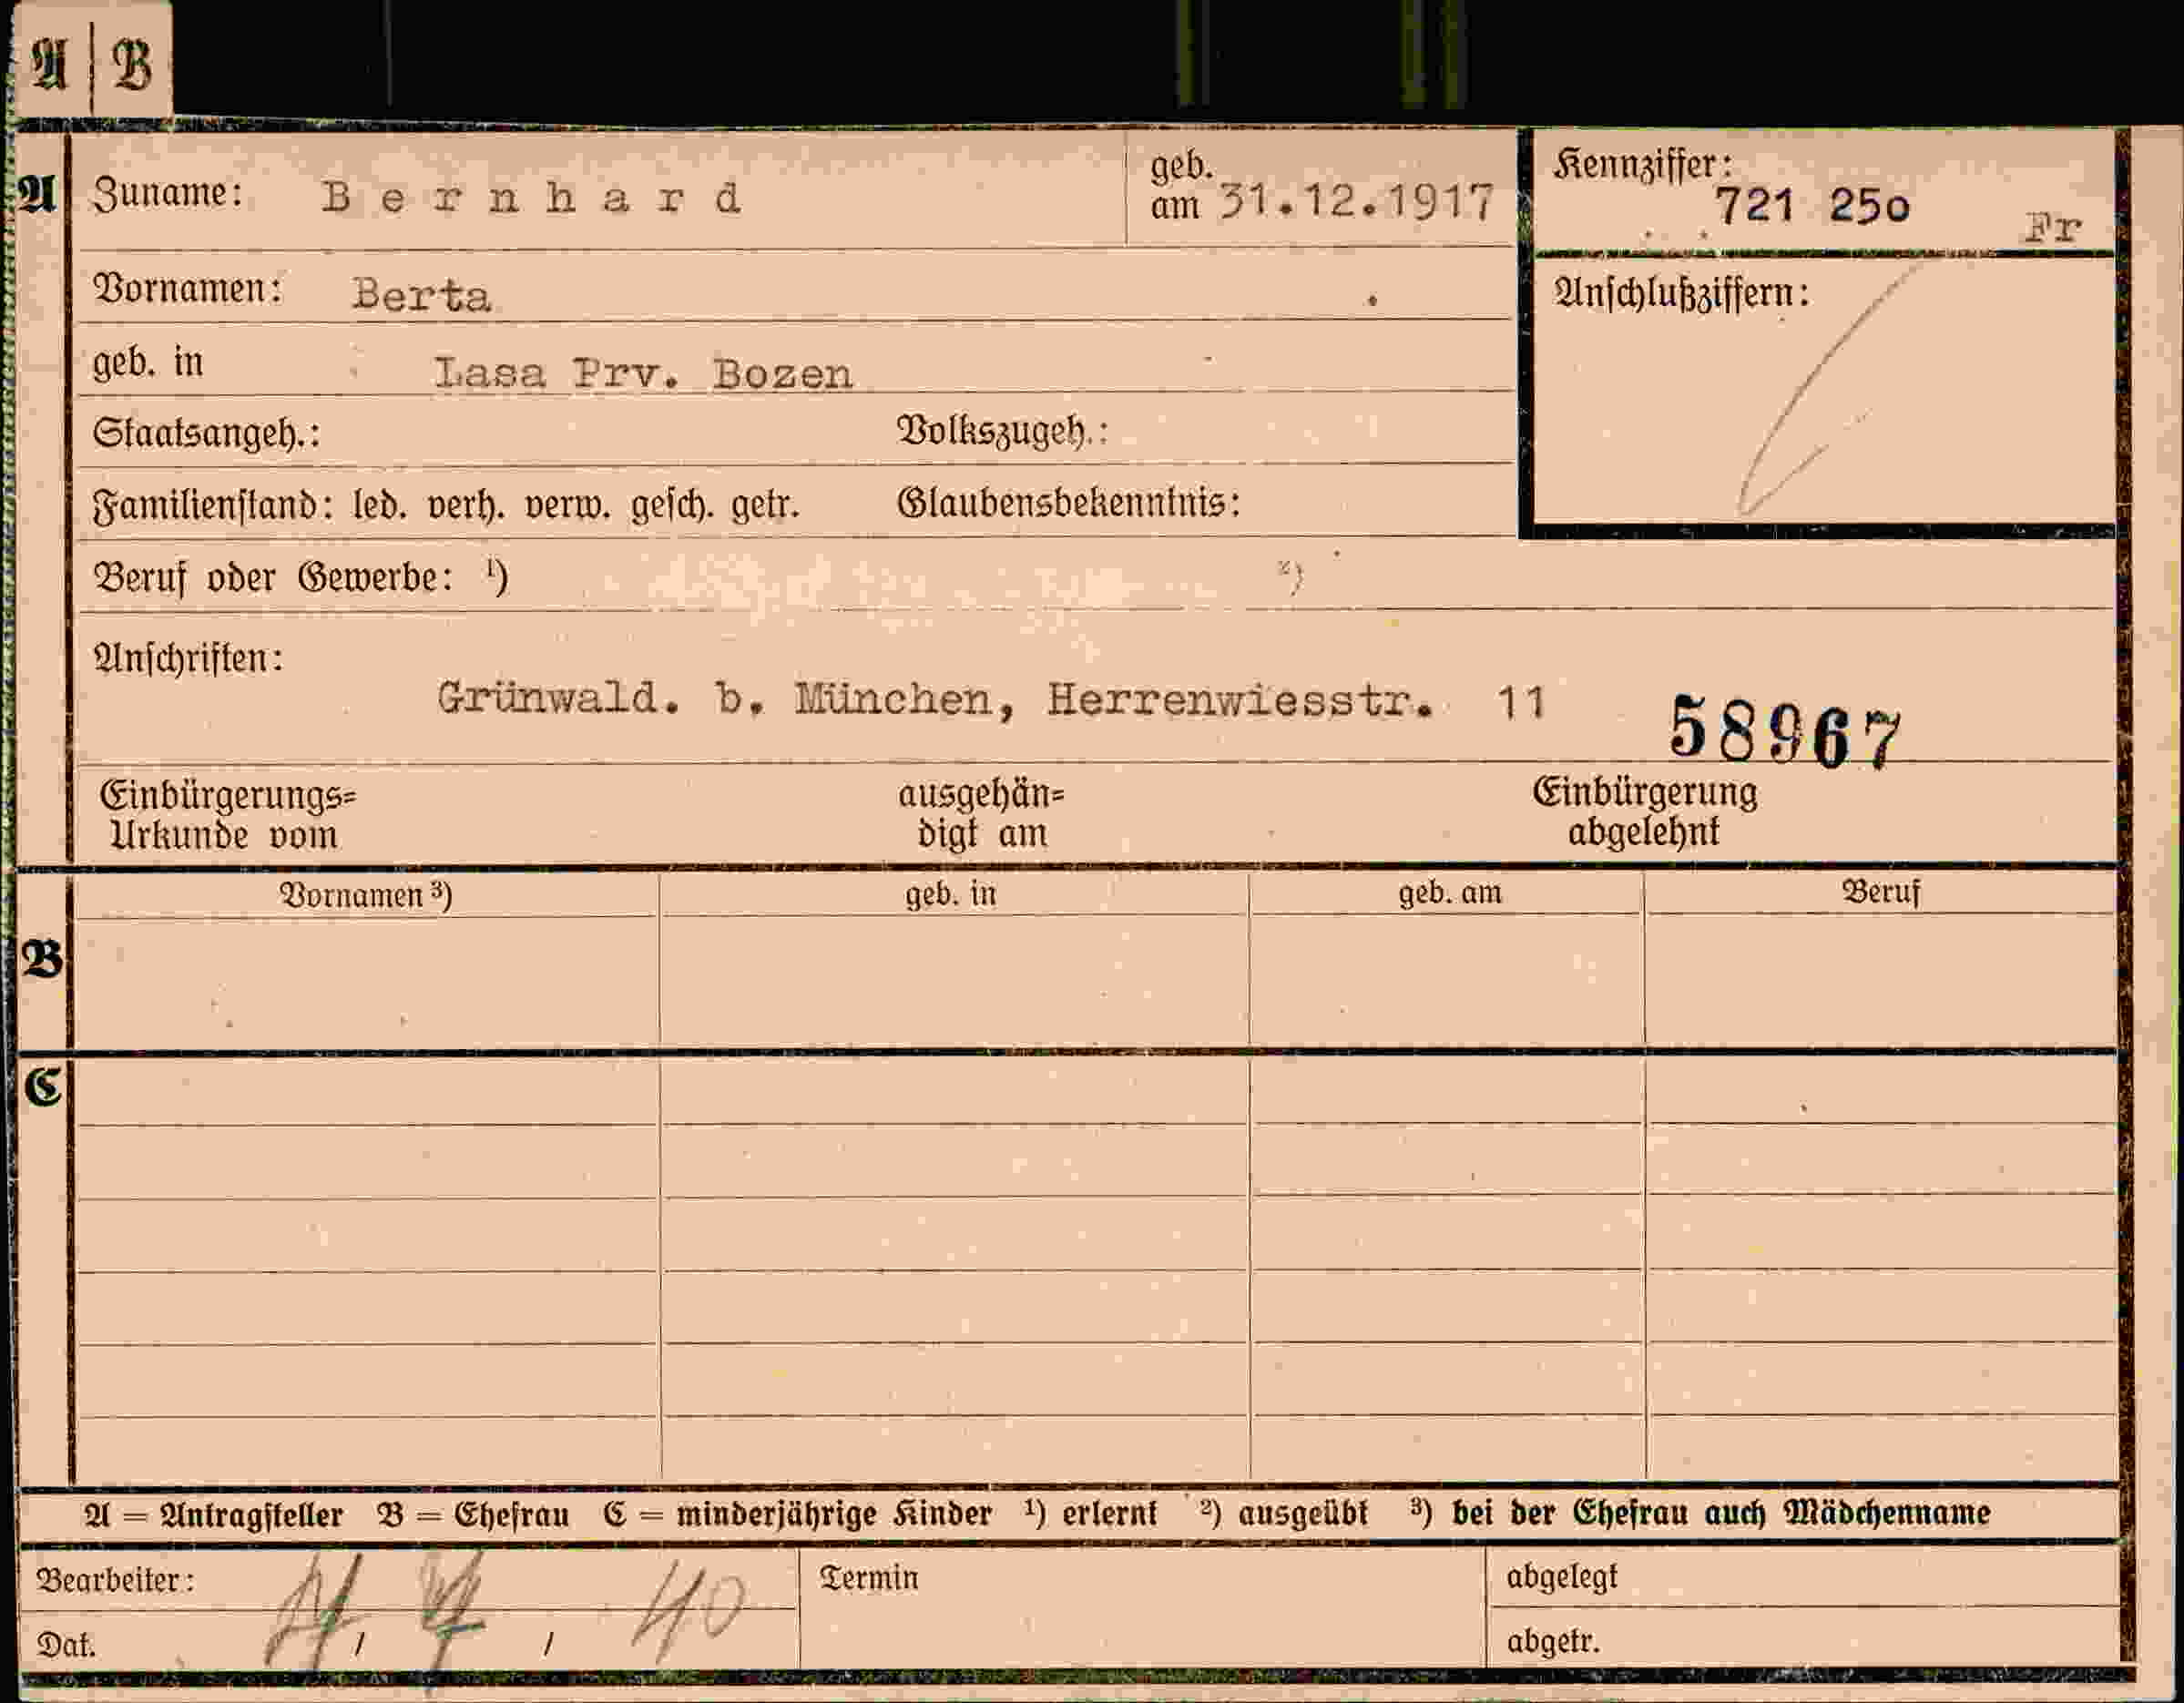 A | B
A Zuname: Bernhard geb. am 31.12.1917 Kennziffer: 721 25o Fr
Vornamen: Berta Anschlußziffern:
geb. in Lasa Prv. Bozen
Staatsangeh.: Volkszugeh.:
Familienstand: led. verh. verw. gesch. getr. Glaubensbekenntnis:
Beruf oder Gewerbe: ¹) ²)
Anschriften:
Grünwald. b. München, Herrenwiesstr. 11 58967
Einbürgerungs= ausgehän= Einbürgerung
Urkunde vom digt am abgelehnt
Vornamen ³) geb. in geb. am Beruf
B
C
A = Antragsteller B = Ehefrau C = minderjährige Kinder ¹) erlernt ²) ausgeübt ³) bei der Ehefrau auch Mädchenname
Bearbeiter: Termin abgelegt
Dat. / / 40 abgetr.